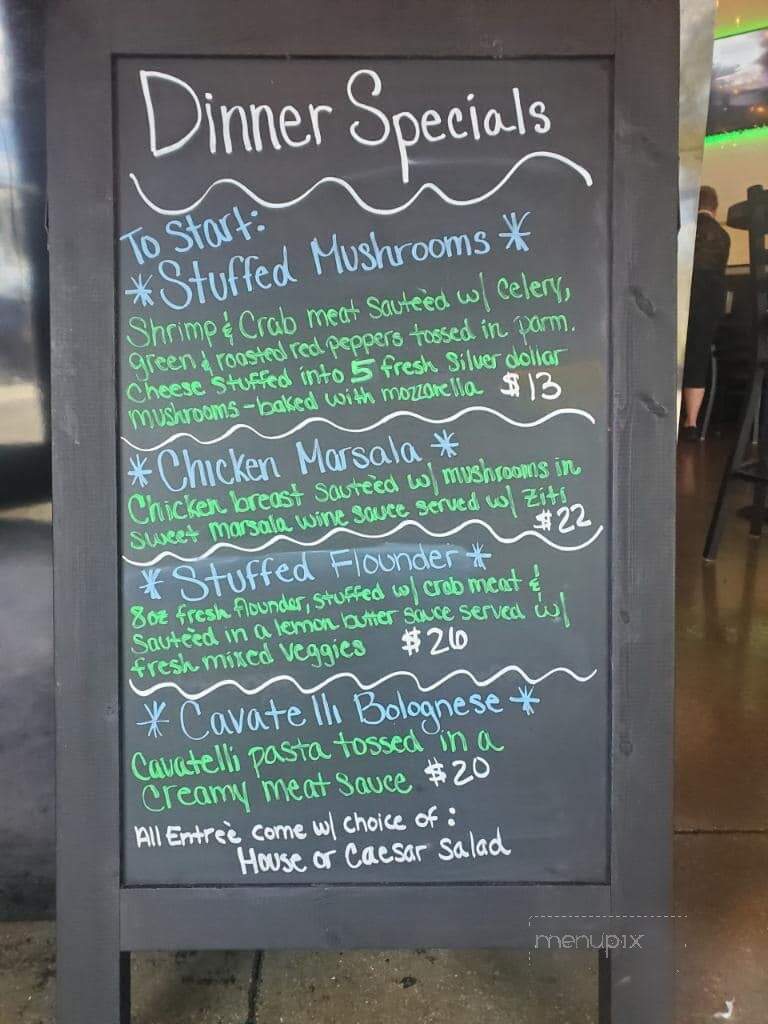 Dinner Specials
To Start:
*Stuffed Mushrooms*
Shrimp & Crab meat Sauteèd w/ celery,
green & roasted red peppers tossed in parm.
Cheese Stuffed into 5 fresh Silver dollar
mushrooms - baked with mozzarella $13
*Chicken Marsala*
Chicken breast Sauteèd w/ mushrooms in
Sweet marsala wine sauce served w/ Ziti
$22
*Stuffed Flounder*
8oz fresh flounder, stuffed w/ crab meat &
Sauteèd in a lemon butter sauce served w/
fresh mixed veggies $26
*Cavatelli Bolognese*
Cavatelli pasta tossed in a
Creamy meat sauce $20
All Entreè come w/ choice of:
House or Caesar Salad
menupix